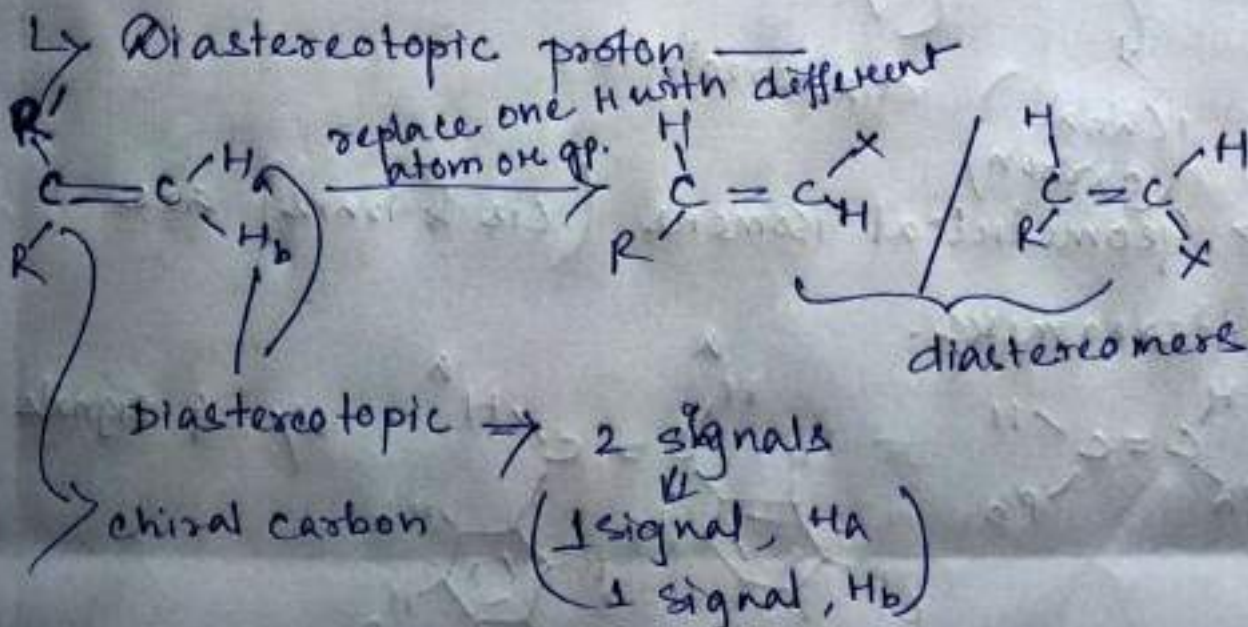 ↳ Diastereotopic proton —
replace one H with different
atom or gp.
R' H H H
C = C Ha C = C X / C = C H
R Hb R H R X
diastereomers
Diastereotopic → 2 signals
chiral carbon (1 signal, Ha
1 signal, Hb)